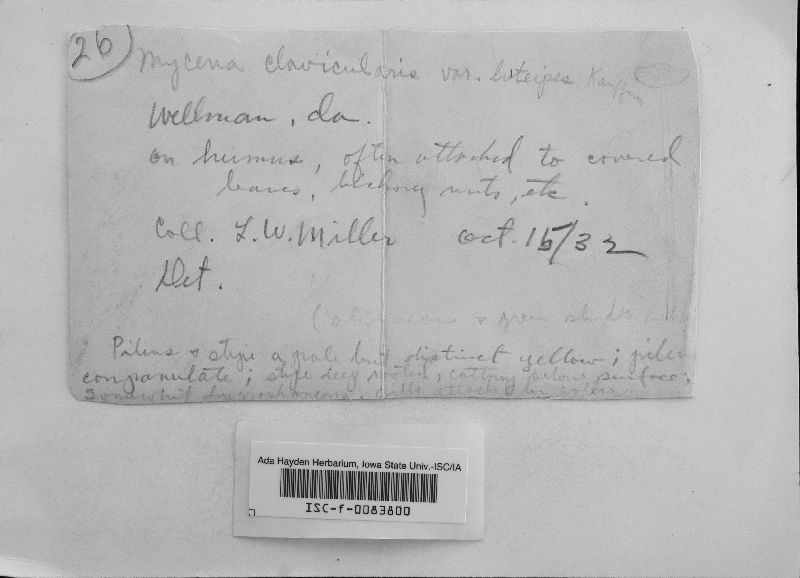 26
Mycena clavicularis var. luteipes Kauffman
Wellman, Ia.
on humus, often attached to covered
leaves, hickory nuts, etc.
Coll. L.W. Miller Oct. 15/32
Det.
& green shades
Pileus & stipe a pale but distinct yellow; pileus
companulate; stipe deep rooted, cottony below surface;
Somewhat hygrophanous. Gills attached by
Ada Hayden Herbarium, Iowa State Univ.-ISC/IA
ISC-f-0083800